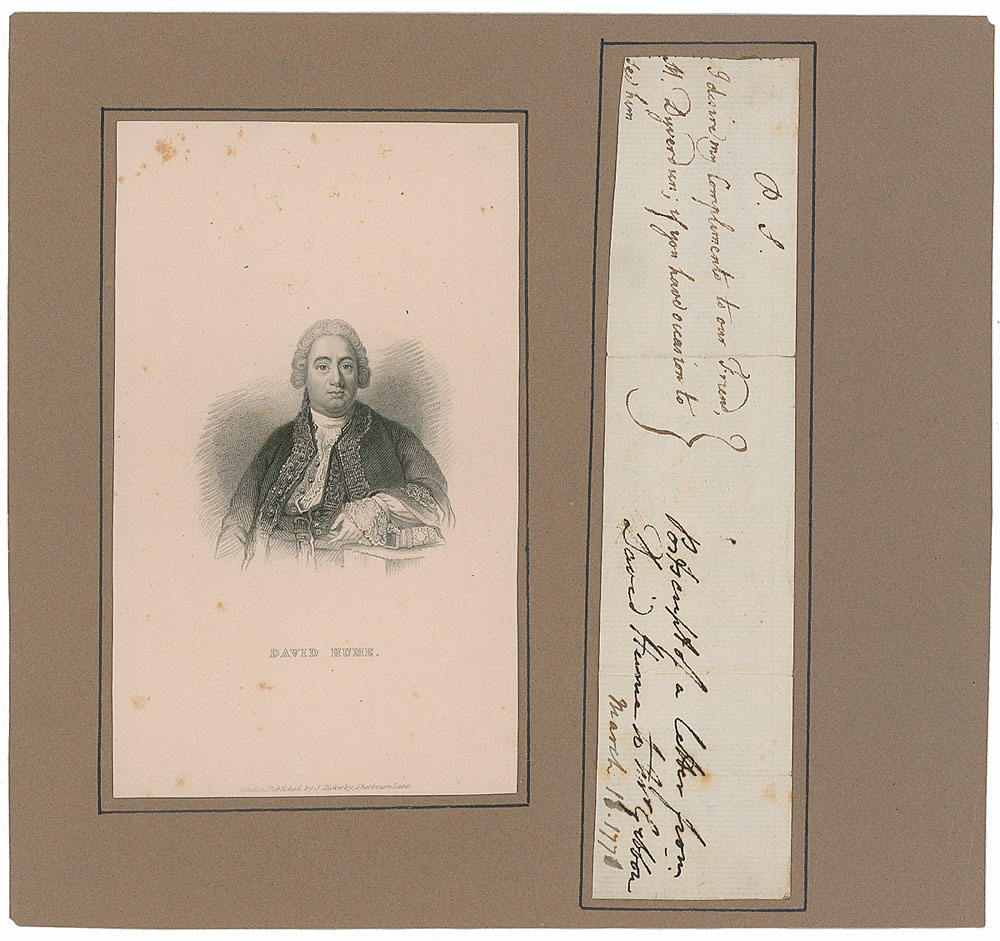 DAVID HUME.
London, Published by J. Rickerby, Sherbourn Lane.
P. S.
I desire my Compliments to our Friend,
M. Dyverdun; if you have occasion to
see him
Postscript of a letter from
David Hume to Mr Gibbon
March 18. 1776